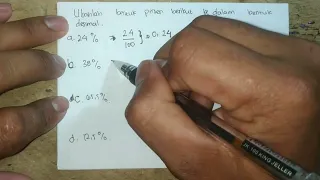 Ubahlah bentuk persen berikut ke dalam bentuk
desimal.
a. 24% → 24/100 } = 0.24
b. 38%
c. 
d. 12,5%
KING JELLER